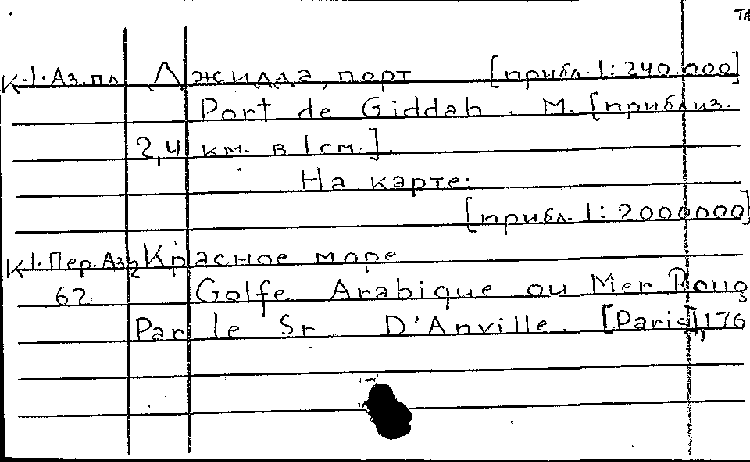 К-1.Аз.пл Джидда, порт [прибл. 1:240 000]
Port de Giddah. М. [приблиз.
2,4 км. в 1 см.].
На карте:
[прибл. 1:2000000]
К-1.Пер.Аз Красное море
62 Golfe Arabique ou Mer Roug
Par le Sr D'Anville. [Paris], 176